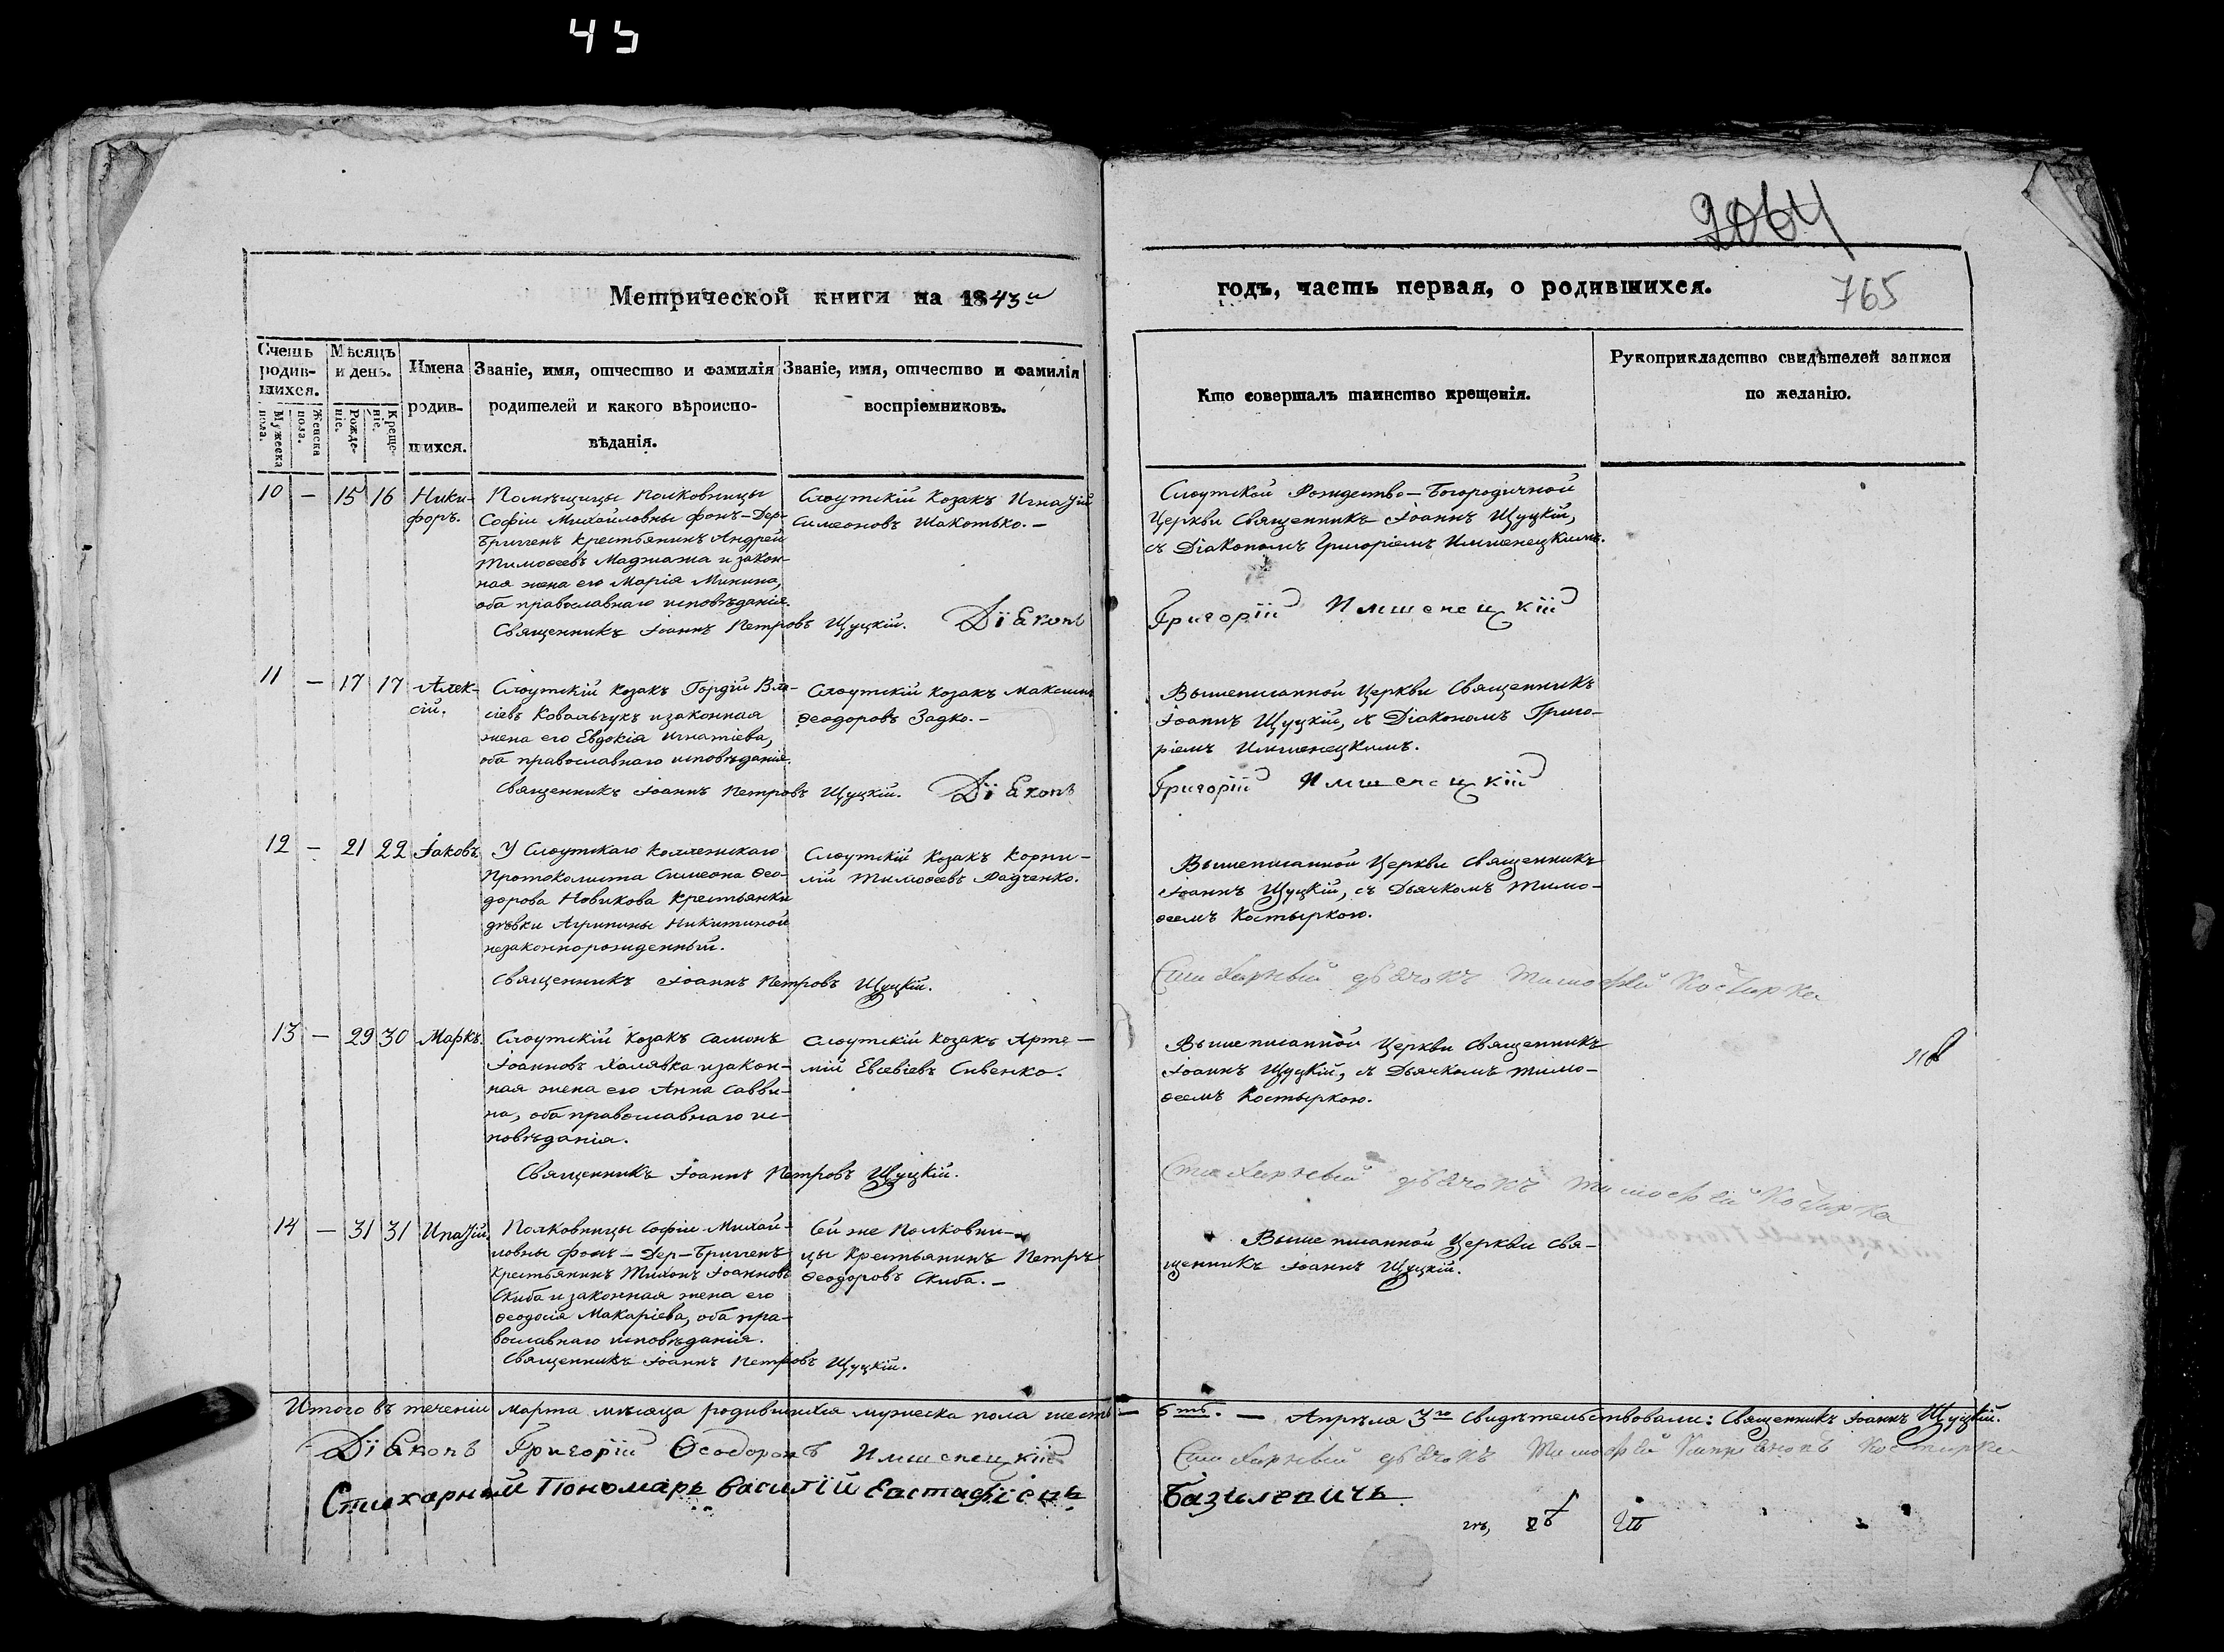 45
2064
Метрической книги на 1843й
годъ, часть первая, о родившихся.
765
Счетъ родив-шихся.
Мужеска пола.
Женска пола.
Мѣсяцъ и день.
Рожде-ніе.
Креще-ніе.
Имена родив-шихся.
Званіе, имя, отчество и фамилія родителей и какого вѣроиспо-вѣданія.
Званіе, имя, отчество и фамилія воспріемниковъ.
Кто совершалъ таинство крещенія.
Рукоприкладство свидѣтелей записи по желанію.
10 — 15 16
Ники-
форъ.
Помѣщицы Полковницы
Софіи Михайловны фонъ-Дер-
Бриггенъ крестьянинъ Андрей
Тимоѳеевъ Маджата и закон-
ная жена его Марія Минина,
оба православнаго исповѣданія.
Слоутскій козакъ Игнатій
Симеоновъ Шакотько.—
Слоутской Рождество-Богородичной
Церкви Священникъ Іоаннъ Щуцкій,
съ Діакономъ Григоріемъ Имшенецкимъ.
Священникъ Іоаннъ Петровъ Щуцкій. Діаконъ
Григорій Имшенецкій
11 — 17 17
Алек-
сій.
Слоутскій козакъ Гордій Вла-
сіевъ Ковальчукъ и законная
жена его Евдокія Игнатіева,
оба православнаго исповѣданія.
Слоутскій козакъ Максимъ
Ѳеодоровъ Задко.—
Вышеписанной Церкви Священникъ
Іоаннъ Щуцкій, съ Діакономъ Григо-
ріемъ Имшенецкимъ.
Священникъ Іоаннъ Петровъ Щуцкій. Діаконъ
Григорій Имшенецкій
12 — 21 22
Іаковъ
У Слоутскаго Коллежскаго
Протоколиста Симеона Ѳео-
дорова Новикова крестьянки
дѣвки Агрипины Никитиной
незаконнорожденный.
Слоутскій козакъ Корни-
лій Тимоѳеевъ Радченко.
Вышеписанной Церкви Священникъ
Іоаннъ Щуцкій, съ Дьячкомъ Тимо-
ѳеемъ Костыркою.
Священникъ Іоаннъ Петровъ Щуцкій.
Стихарный дьячокъ Тимофей Костирка
13 — 29 30
Маркъ.
Слоутскій козакъ Самонъ
Іоанновъ Халявка и закон-
ная жена его Анна Савви-
на, оба православнаго ис-
повѣданія.
Слоутскій козакъ Арте-
мій Евсевіевъ Сивенко.
Вышеписанной Церкви Священникъ
Іоаннъ Щуцкій, съ Дьячкомъ Тимо-
ѳеемъ Костыркою.
Священникъ Іоаннъ Петровъ Щуцкій.
Стихарный дьячокъ Тимофей Костирка
14 — 31 31
Ипатій
Полковницы Софіи Михай-
ловны фонъ-Дер-Бриггенъ
крестьянинъ Тихонъ Іоанновъ
Скиба и законная жена его
Ѳеодосія Макаріева, оба пра-
вославнаго исповѣданія.
Сей же Полковни-
цы крестьянинъ Петръ
Ѳеодоровъ Скиба.—
Вышеписанной Церкви Свя-
щенникъ Іоаннъ Щуцкій.
Священникъ Іоаннъ Петровъ Щуцкій.
Итого въ теченіи марта мѣсяца родившихся мужеска пола шесть — 6ть. — Апрѣля 3го свидѣтельствовали: Священникъ Іоаннъ Щуцкій.
Діаконъ Григорій Ѳеодоровъ Имшенецкій
Стихарный дьячокъ Тимофей Костирка
Стихарный Пономарь Василій Евстафіевъ Базилевичъ